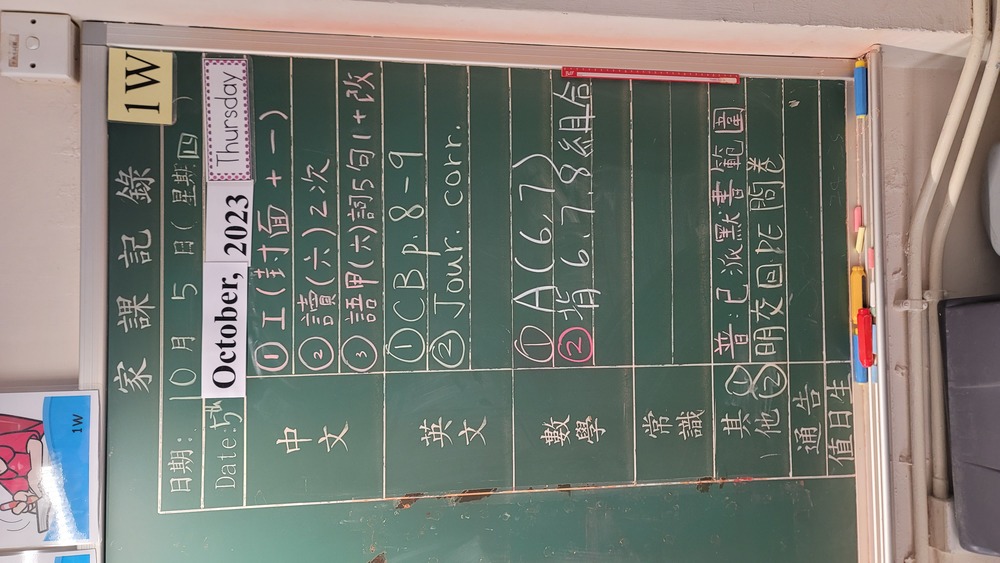 1W
家課記錄
日期: 10月5日(星期四)
Date: 5th October, 2023 Thursday
中文
① I (封面+一)
② 讀(六)2次
③ 語甲(六)詞5句1+改
英文
① CB p. 8-9
② Jour. corr.
數學
① A(6,7)
② 指 6.7.8組合
常識
其他
① 普:已派默書範圍
② 明交回PE問卷
通告
值日生
1W
1W